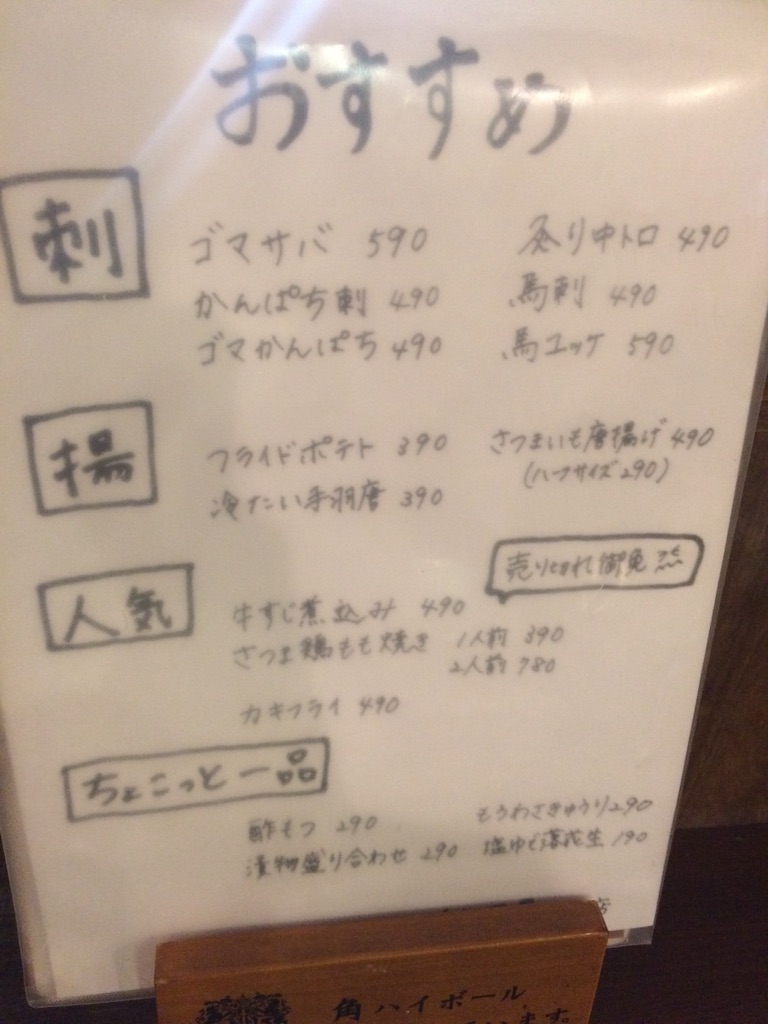 おすすめ
刺
ゴマサバ 590
炙り中トロ 490
かんぱち刺 490
馬刺 490
ゴマかんぱち 490
馬ユッケ 590
揚
フライドポテト 390
さつまいも唐揚げ 490
(ハーフサイズ 290)
冷たい手羽唐 390
売り切れ御免
人気
牛すじ煮込み 490
さつま鶏もも焼き 1人前 390
2人前 780
カキフライ 490
ちょこっと一品
酢もつ 290
もろわさきゅうり 290
漬物盛り合わせ 290
塩ゆで落花生 190
店
角ハイボール
います。